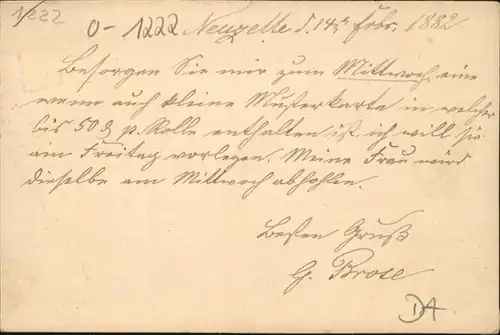 1/222
0-1222 Neuzelle d. 14t Febr. 1882
Besorgen Sie mir zum Mittwoch eine
wenn auch kleine Musterkarte in welcher
bis 50 ₰ p. Rolle enthalten ist, ich will sie
am Freitag vorlegen. Meine Frau wird
dieselbe am Mittwoch abholen.
Besten Gruß
G. Brose
DA